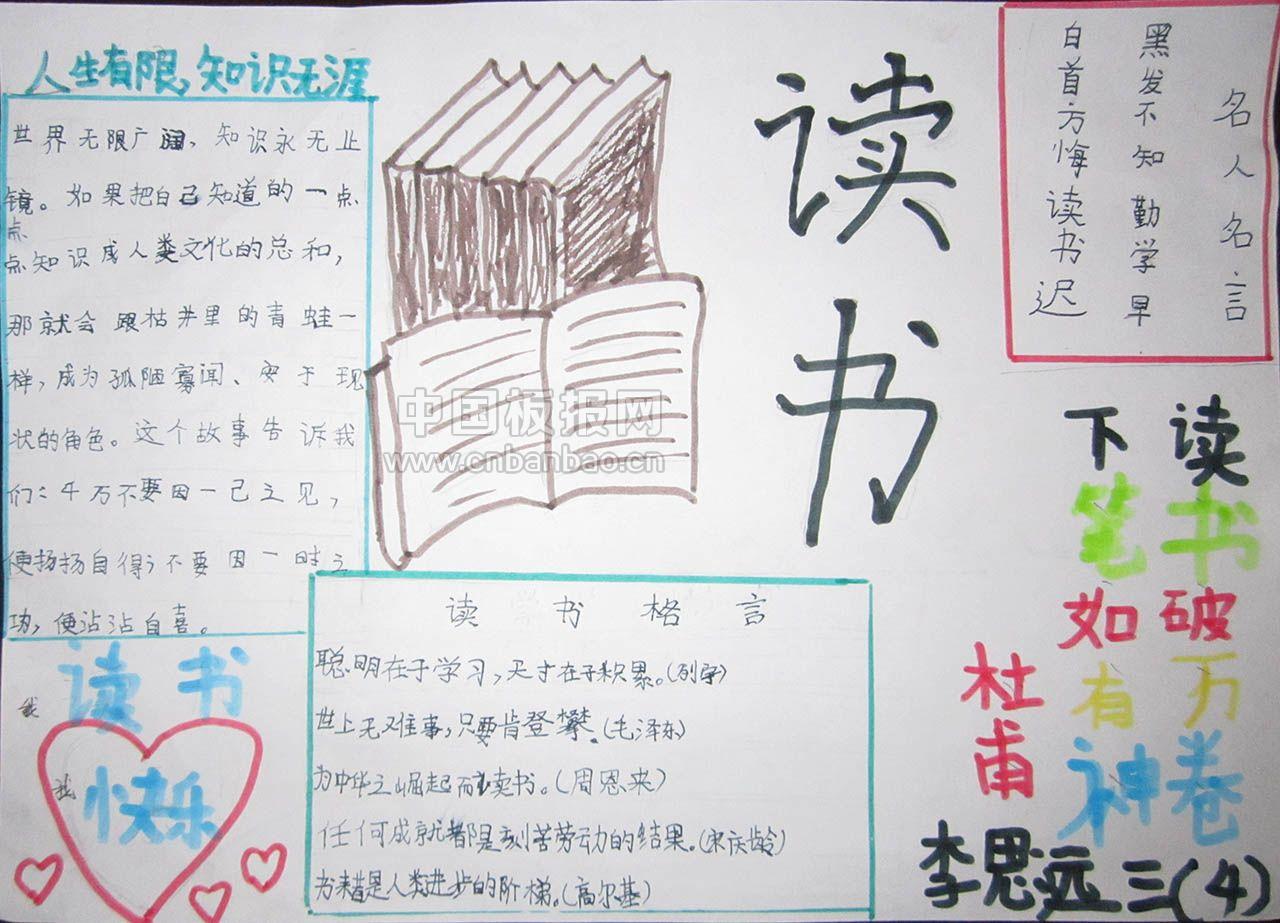 人生有限,知识无涯
世界无限广阔、知识永无止
镜。如果把自己知道的一点
点
点知识成人类文化的总和,
那就会跟枯井里的青蛙一
样,成为孤陋寡闻、安于现
状的角色。这个故事告诉我
们:千万不要因一己之见,
便扬扬自得;不要因一时之
功,便沾沾自喜。
读书
我
我
快乐
中国板报网
www.cnbanbao.cn
读书
名人名言
黑发不知勤学早
白首方悔读书迟
读书破万卷
下笔如有神
杜甫
读书格言
聪明在于学习,天才在于积累。(列宁)
世上无难事,只要肯登攀。(毛泽东)
为中华之崛起而读书。(周恩来)
任何成就都是刻苦劳动的结果。(宋庆龄)
书籍是人类进步的阶梯。(高尔基)
李思远 三(4)